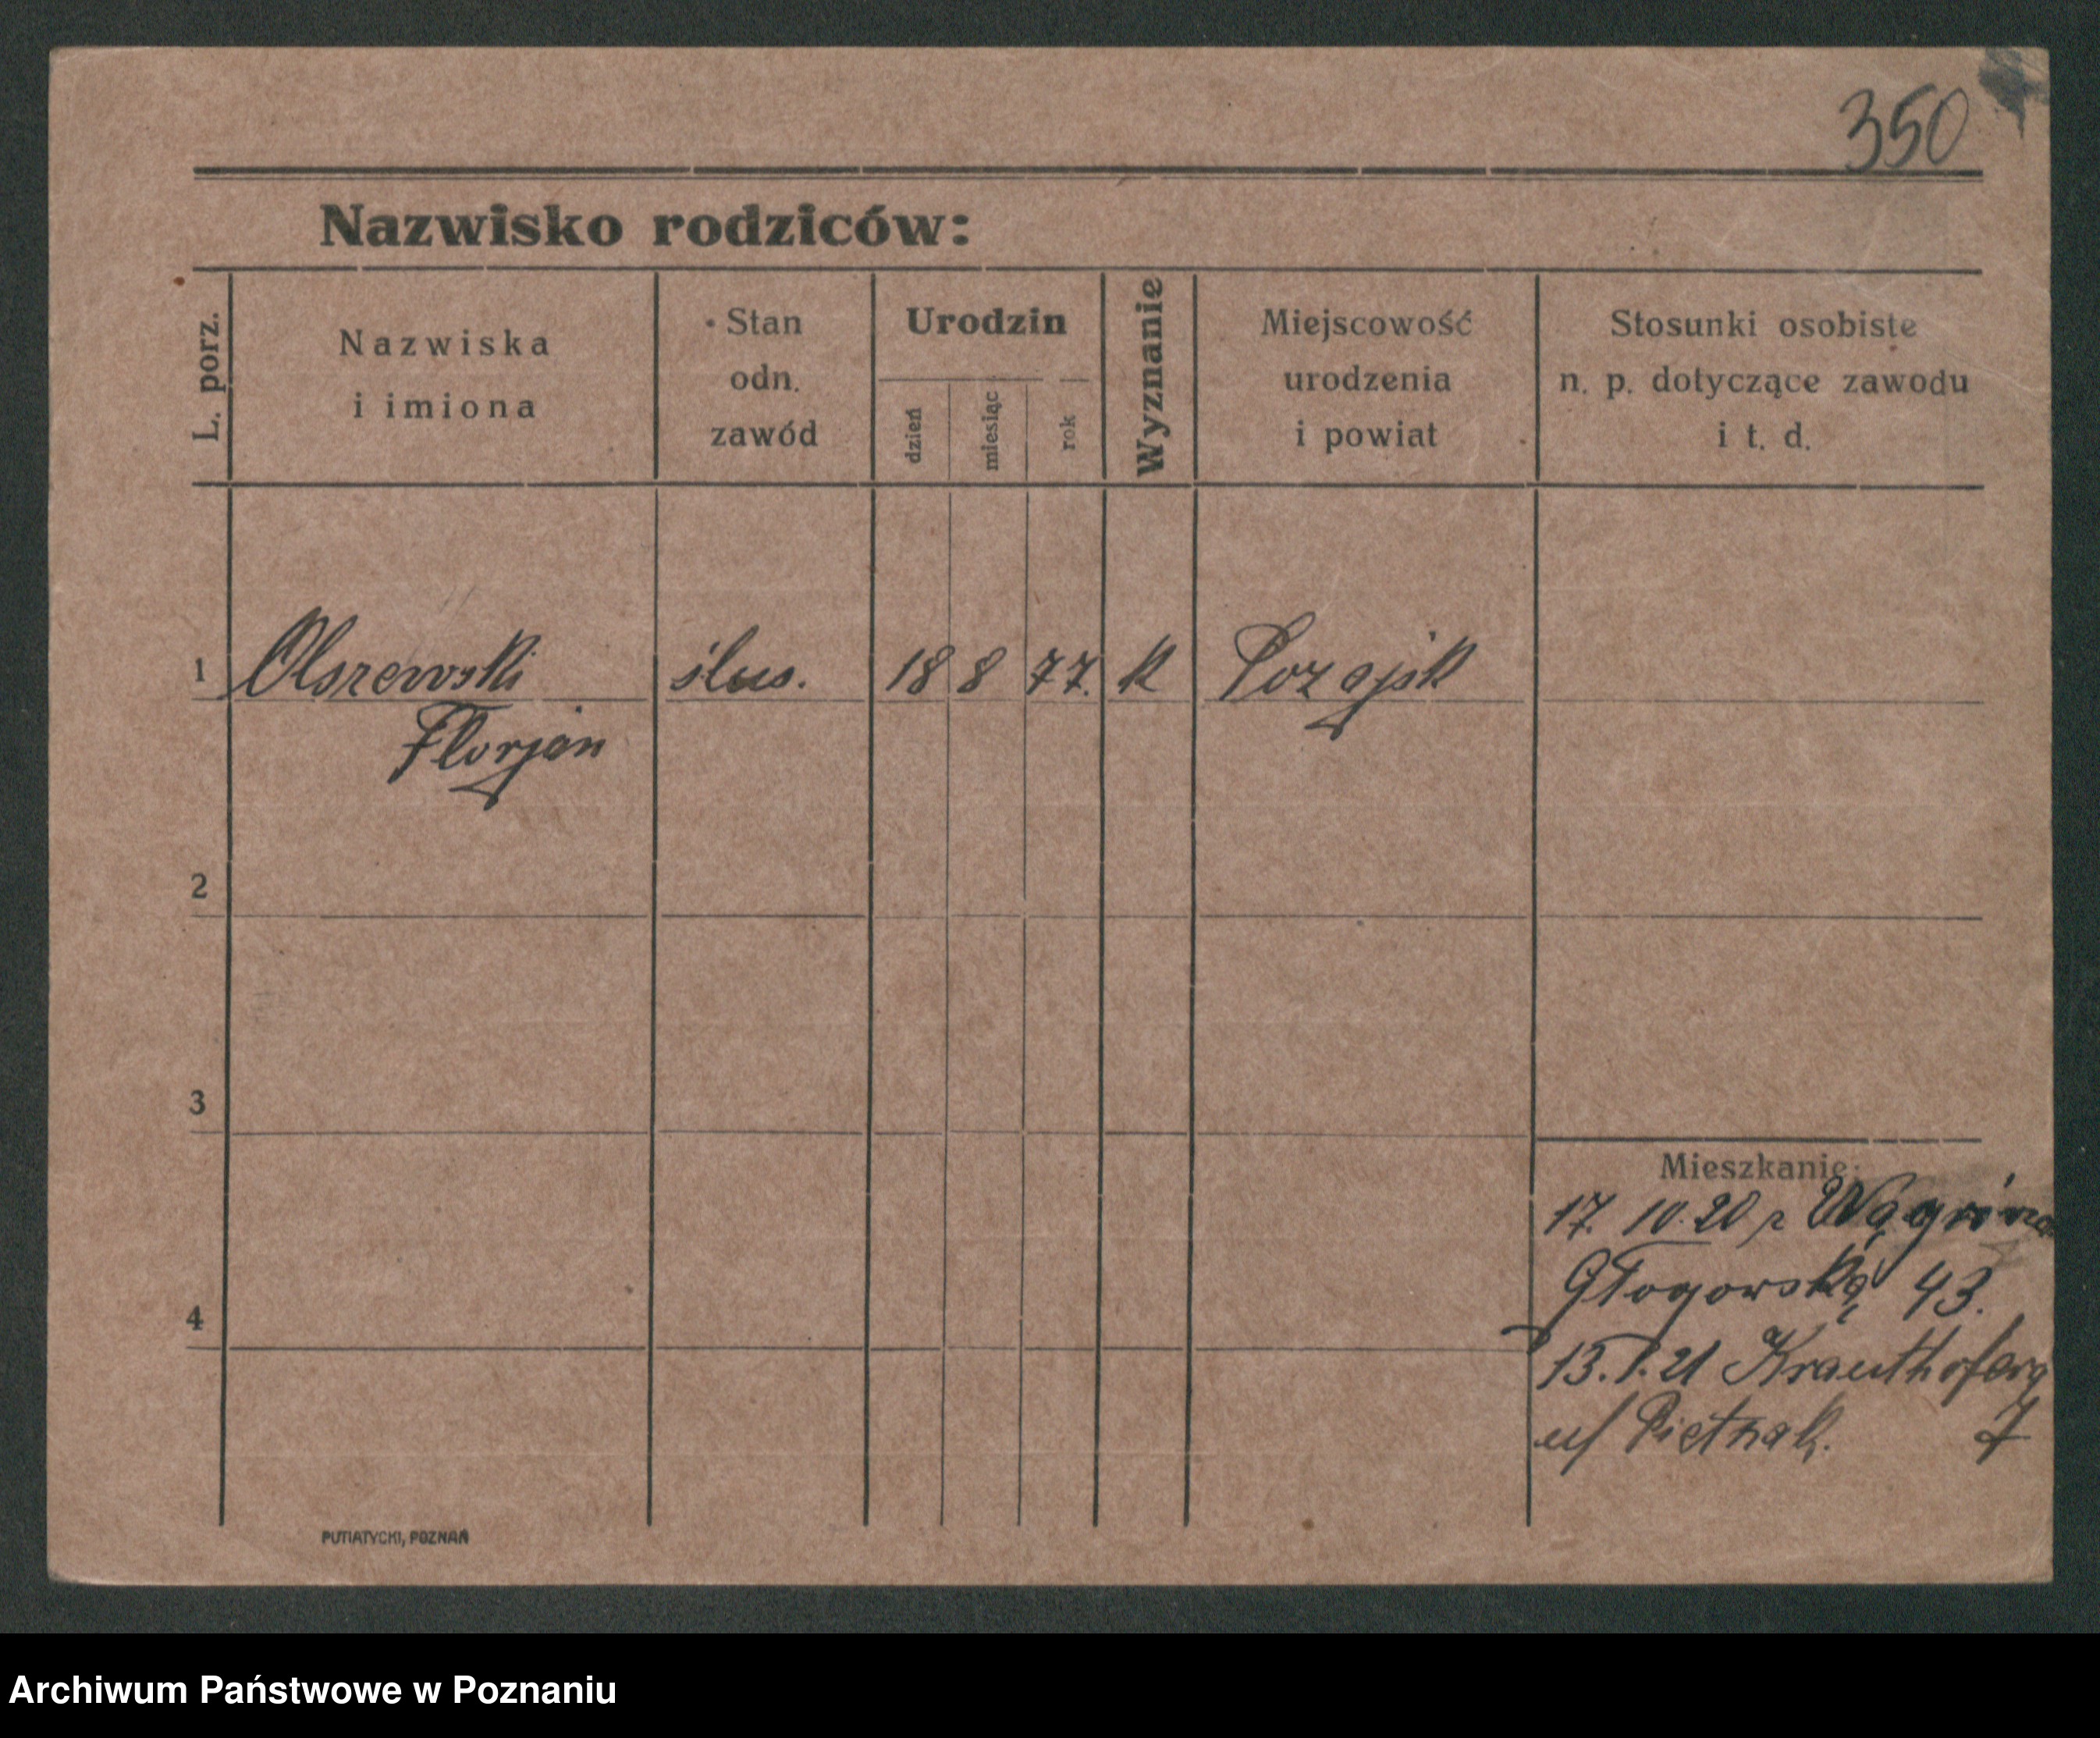 350
Nazwisko rodziców:
L. porz.
Nazwiska
i imiona
Stan
odn.
zawód
Urodzin
dzień
miesiąc
rok
Wyznanie
Miejscowość
urodzenia
i powiat
Stosunki osobiste
n. p. dotyczące zawodu
i t. d.
1 Olszewski ślus. 18 8 77. k
Florjan
2
3
4
Mieszkanie:
17. 10. 20 z
Głogowska 43.
13. 1. 21
u/ Pietrzak. 7
PUTIATYCKI, POZNAŃ
Archiwum Państwowe w Poznaniu